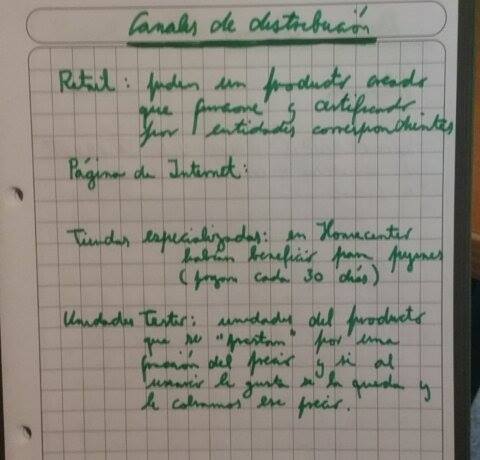 Canales de distribución
Retail: piden un producto creado
que funcione y certificado
por entidades correspondientes
Página de Internet:
Tiendas especializadas: en Homecenter
habían beneficio para pymes
(pagan cada 30 días)
Unidades Tester: unidades del producto
que se "prestan" por una
fracción del precio y si al
usuario le gusta se la queda y
le cobramos ese precio.